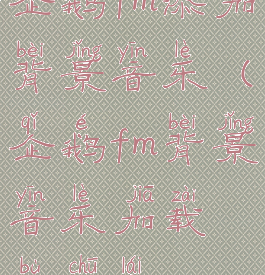 企鹅fm添加
bèi jǐng yīn lè
背景音乐（
qǐ é bèi jǐng
企鹅fm背景
yīn lè jiā zài
音乐加载
bù chū lái